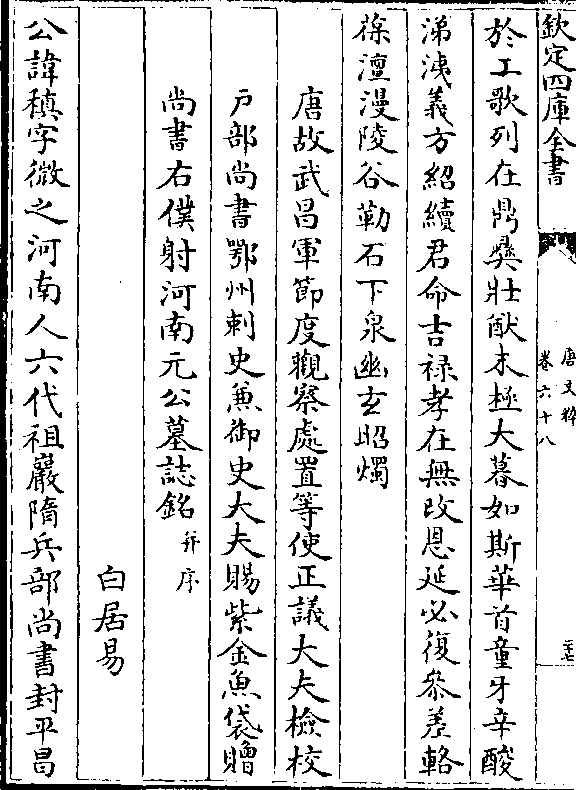 欽定四庫全書
唐文粹
卷六十八
於工歌列在鼎彝壯猷未極大暮如斯華首童牙辛酸
涕洟義方紹續君命吉祿孝在無改恩延必復參差輅
葆澶漫陵谷勒石下泉幽玄昭燭
唐故武昌軍節度觀察處置等使正議大夫檢校
戸部尚書鄂州刺史兼御史大夫賜紫金魚袋贈
尚書右僕射河南元公墓誌銘并序
白居易
公諱稹字微之河南人六代祖巖隋兵部尚書封平昌